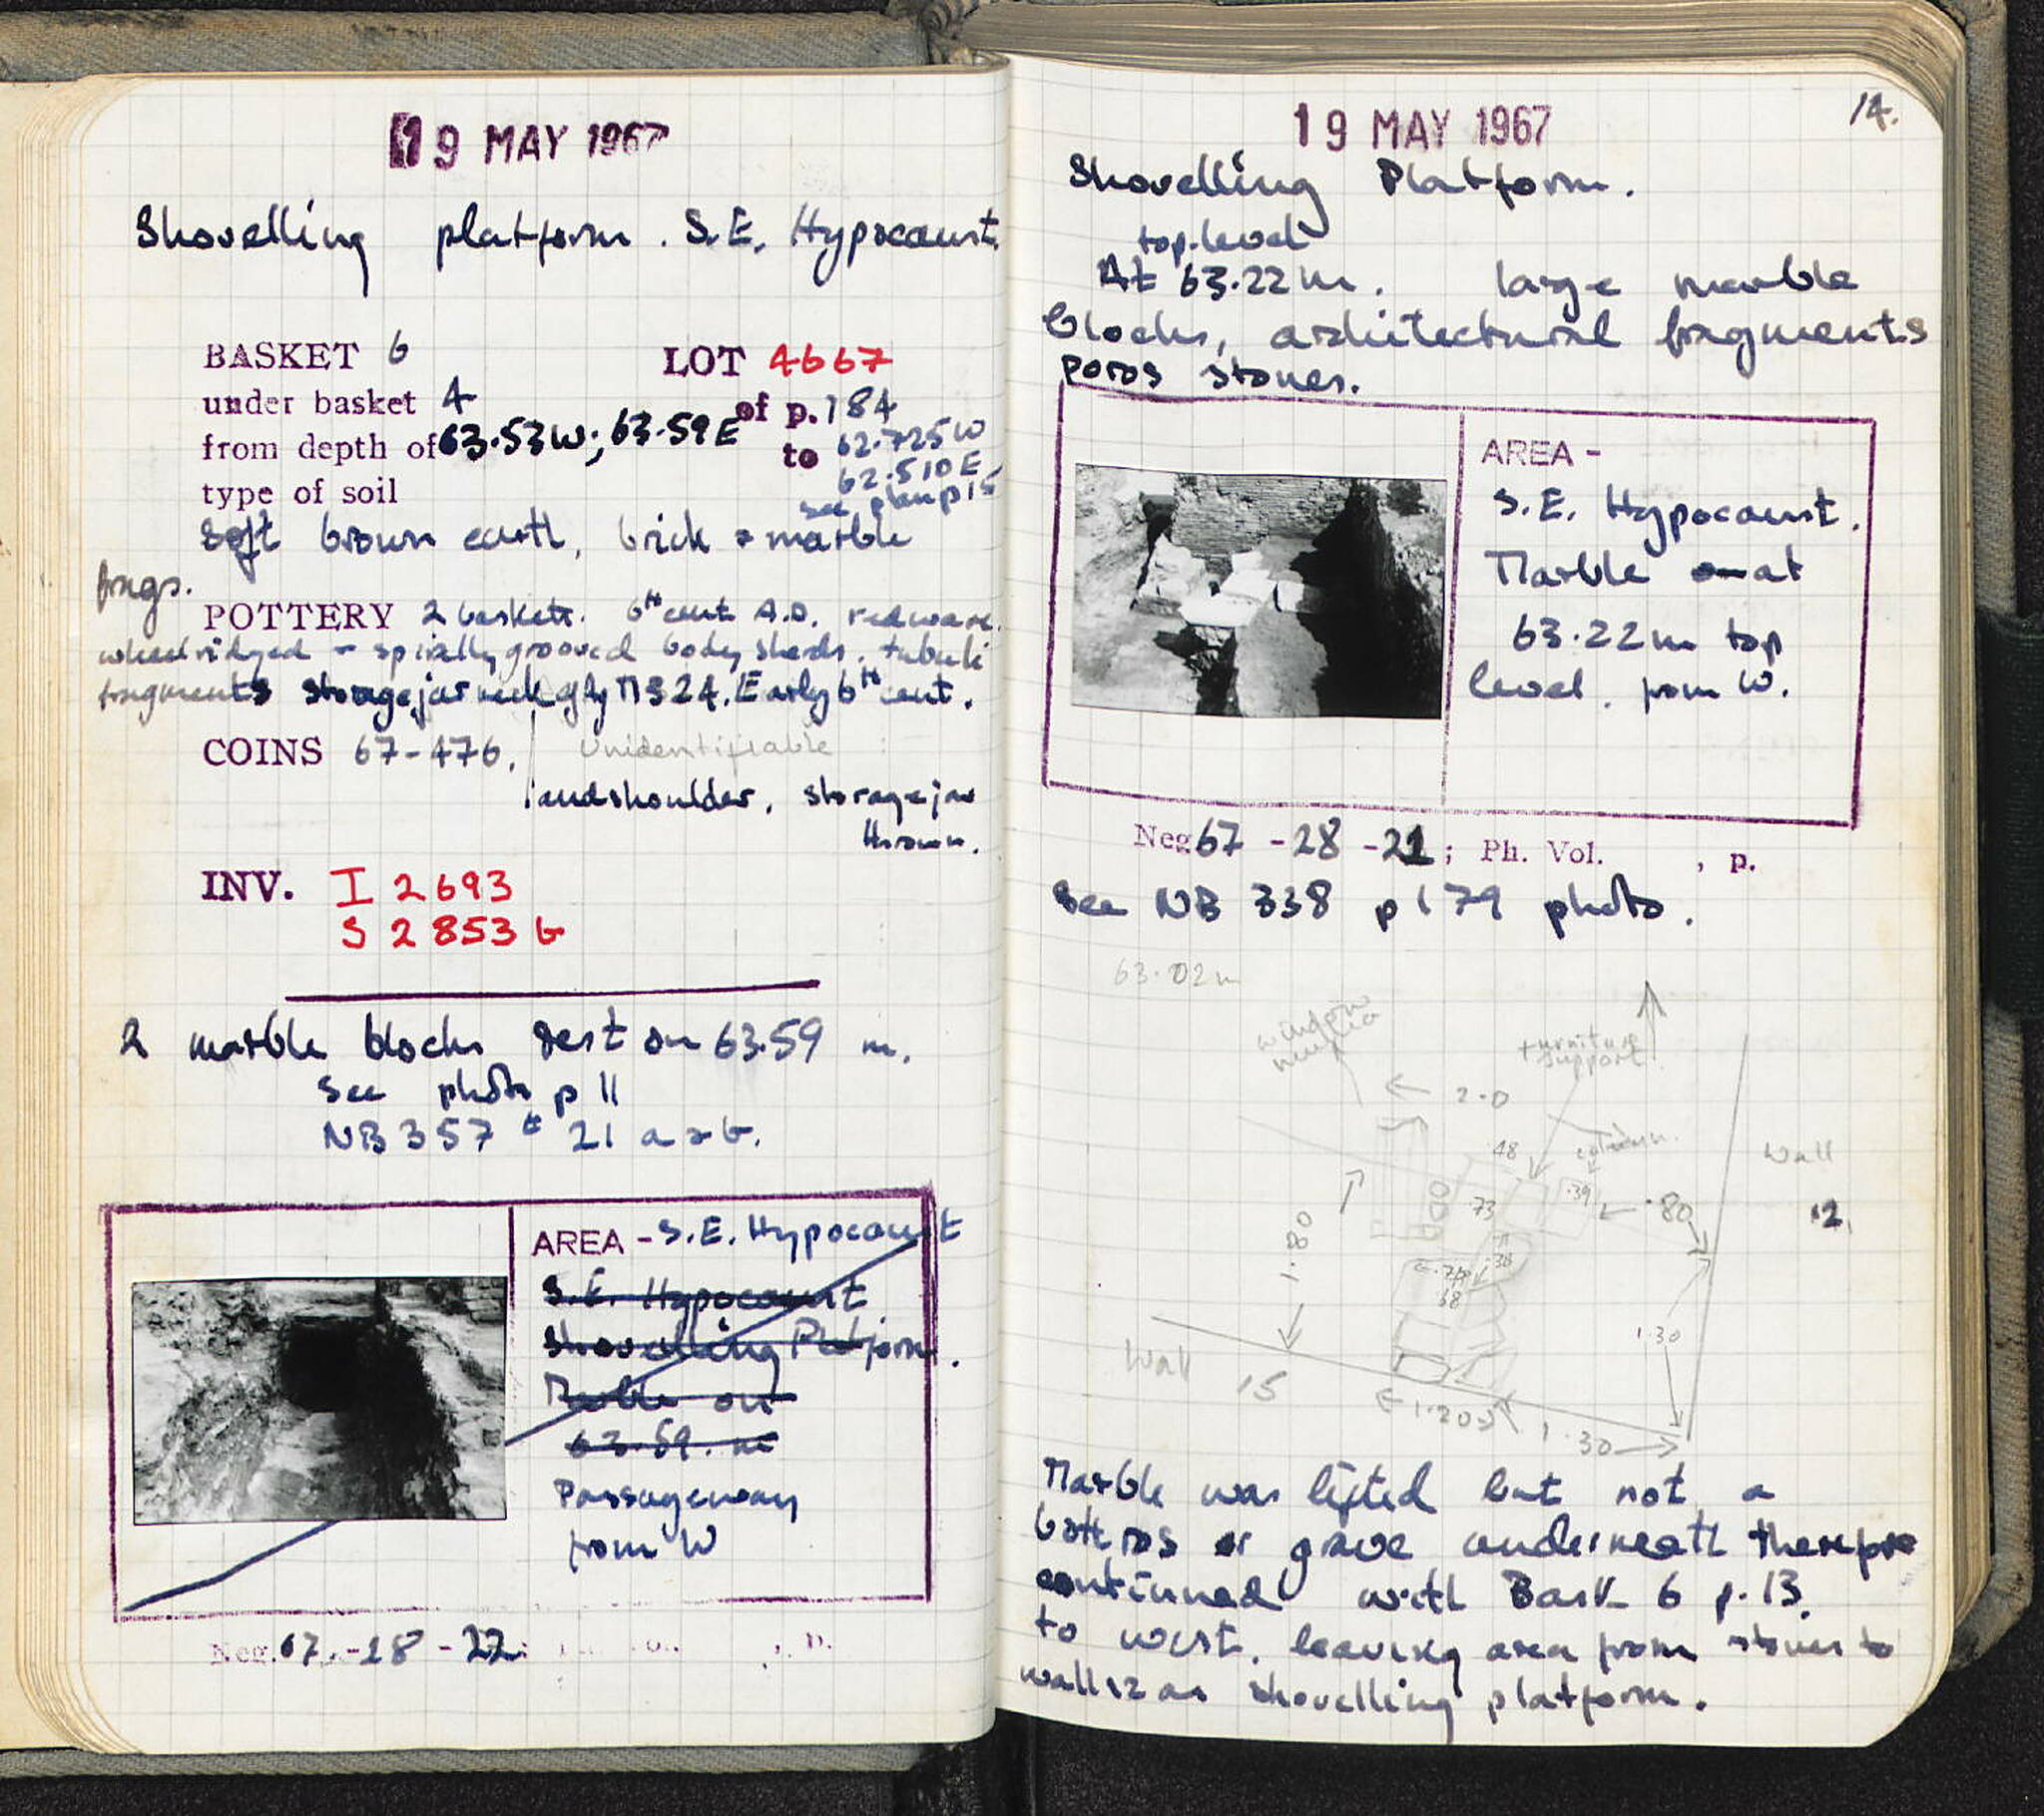 19 MAY 1967
Shovelling platform. S.E. Hypocaust
BASKET 6 LOT 4667
under basket 4 of p. 184
from depth of 63.53W; 63.59E to 62.725W
62.510E
type of soil see plan p15
Soft brown earth, brick & marble
frags.
POTTERY 2 baskets. 6th cent A.D. red ware.
wheel ridged & spirally grooved body sherds, tubuli
fragments storage jar neck Early 6th cent.
COINS 67-476. Unidentifiable
and shoulder, storage jar
thrown.
INV. I 2693
S 2853 b
2 marble blocks rest on 63.59 m.
See photo p 11
NB 357 # 21 a & b.
AREA - S.E. Hypocaust
S.E. Hypocaust
Shovelling Platform.
Marble on
63.59. m
Passageway
from W
Neg. 67.-18-22
14.
19 MAY 1967
Shovelling Platform.
top level
At 63.22m. large marble
blocks, architectural fragments
poros stones.
AREA -
S.E. Hypocaust.
Marble at
63.22m top
level. from W.
Neg 67-28-21; Ph. Vol. , p.
See NB 338 p 179 photo.
63.02m
window
furniture
support
2.0
.48
column.
Wall
.73
.39
.80
12.
1.80
.36
.68
1.30
Wall 15
1.20
1.30
Marble was lifted but not a
bothros or grave underneath therefore
continued with Bask 6 p. 13.
to west, leaving area from stones to
wall 12 as shovelling platform.